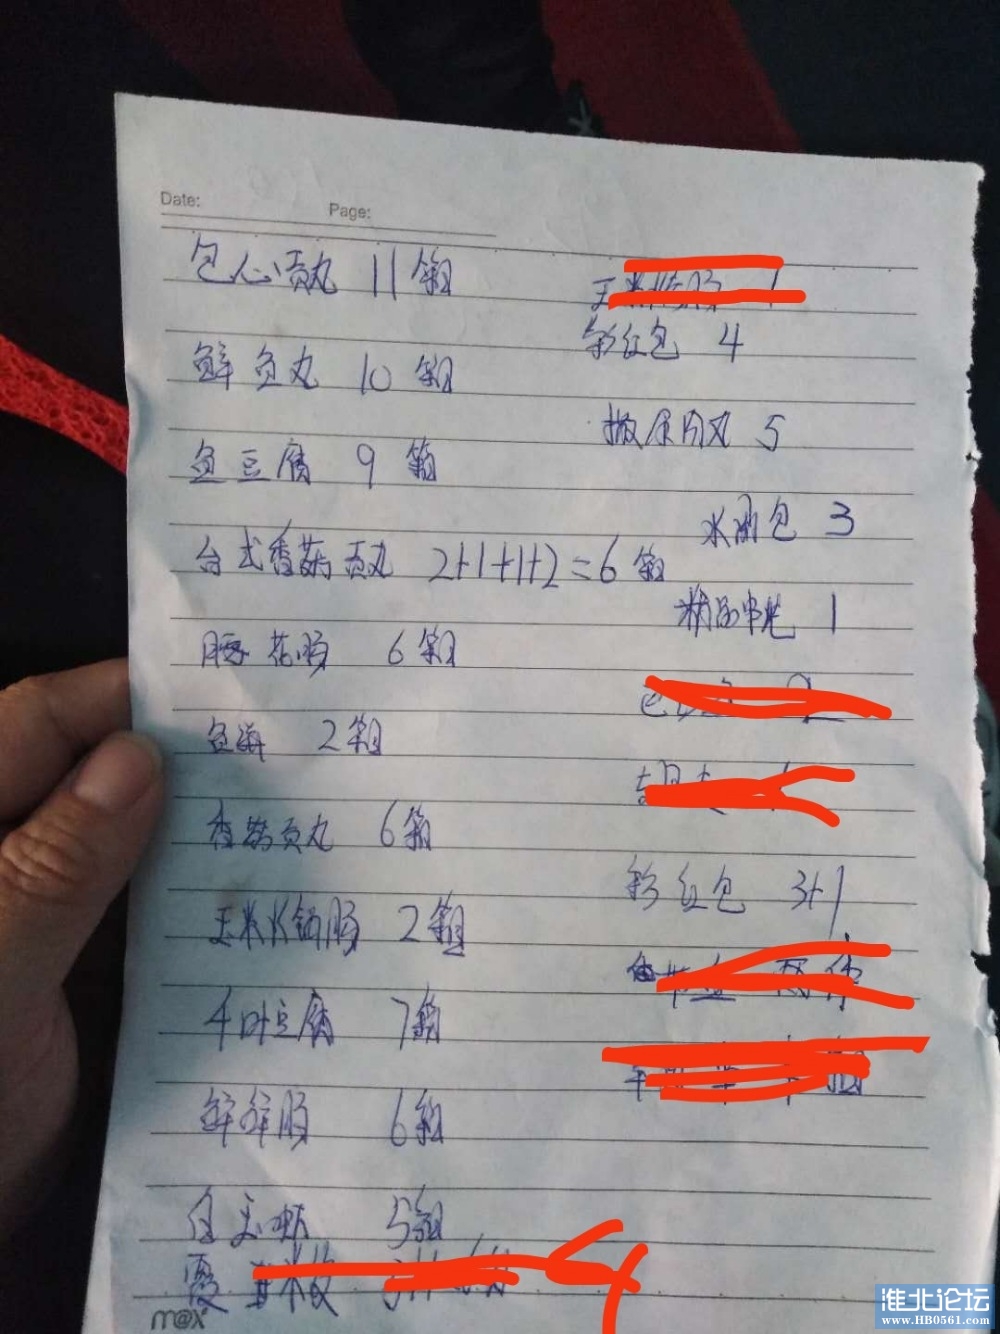 Date:
Page:
包心贡丸 11箱
鲜鱼丸 10箱
鱼豆腐 9箱
台式香菇贡丸 2+1+1+2=6箱
腰花肠 6箱
鱼 2箱
香菇贡丸 6箱
玉米火锅肠 2箱
千叶豆腐 7箱
鲜鲜肠 6箱
5箱
彩红包 4
撒尿肉丸 5
水油包 3
精品 1
彩红包 3+1
m@x
淮北论坛
www.HB0561.com